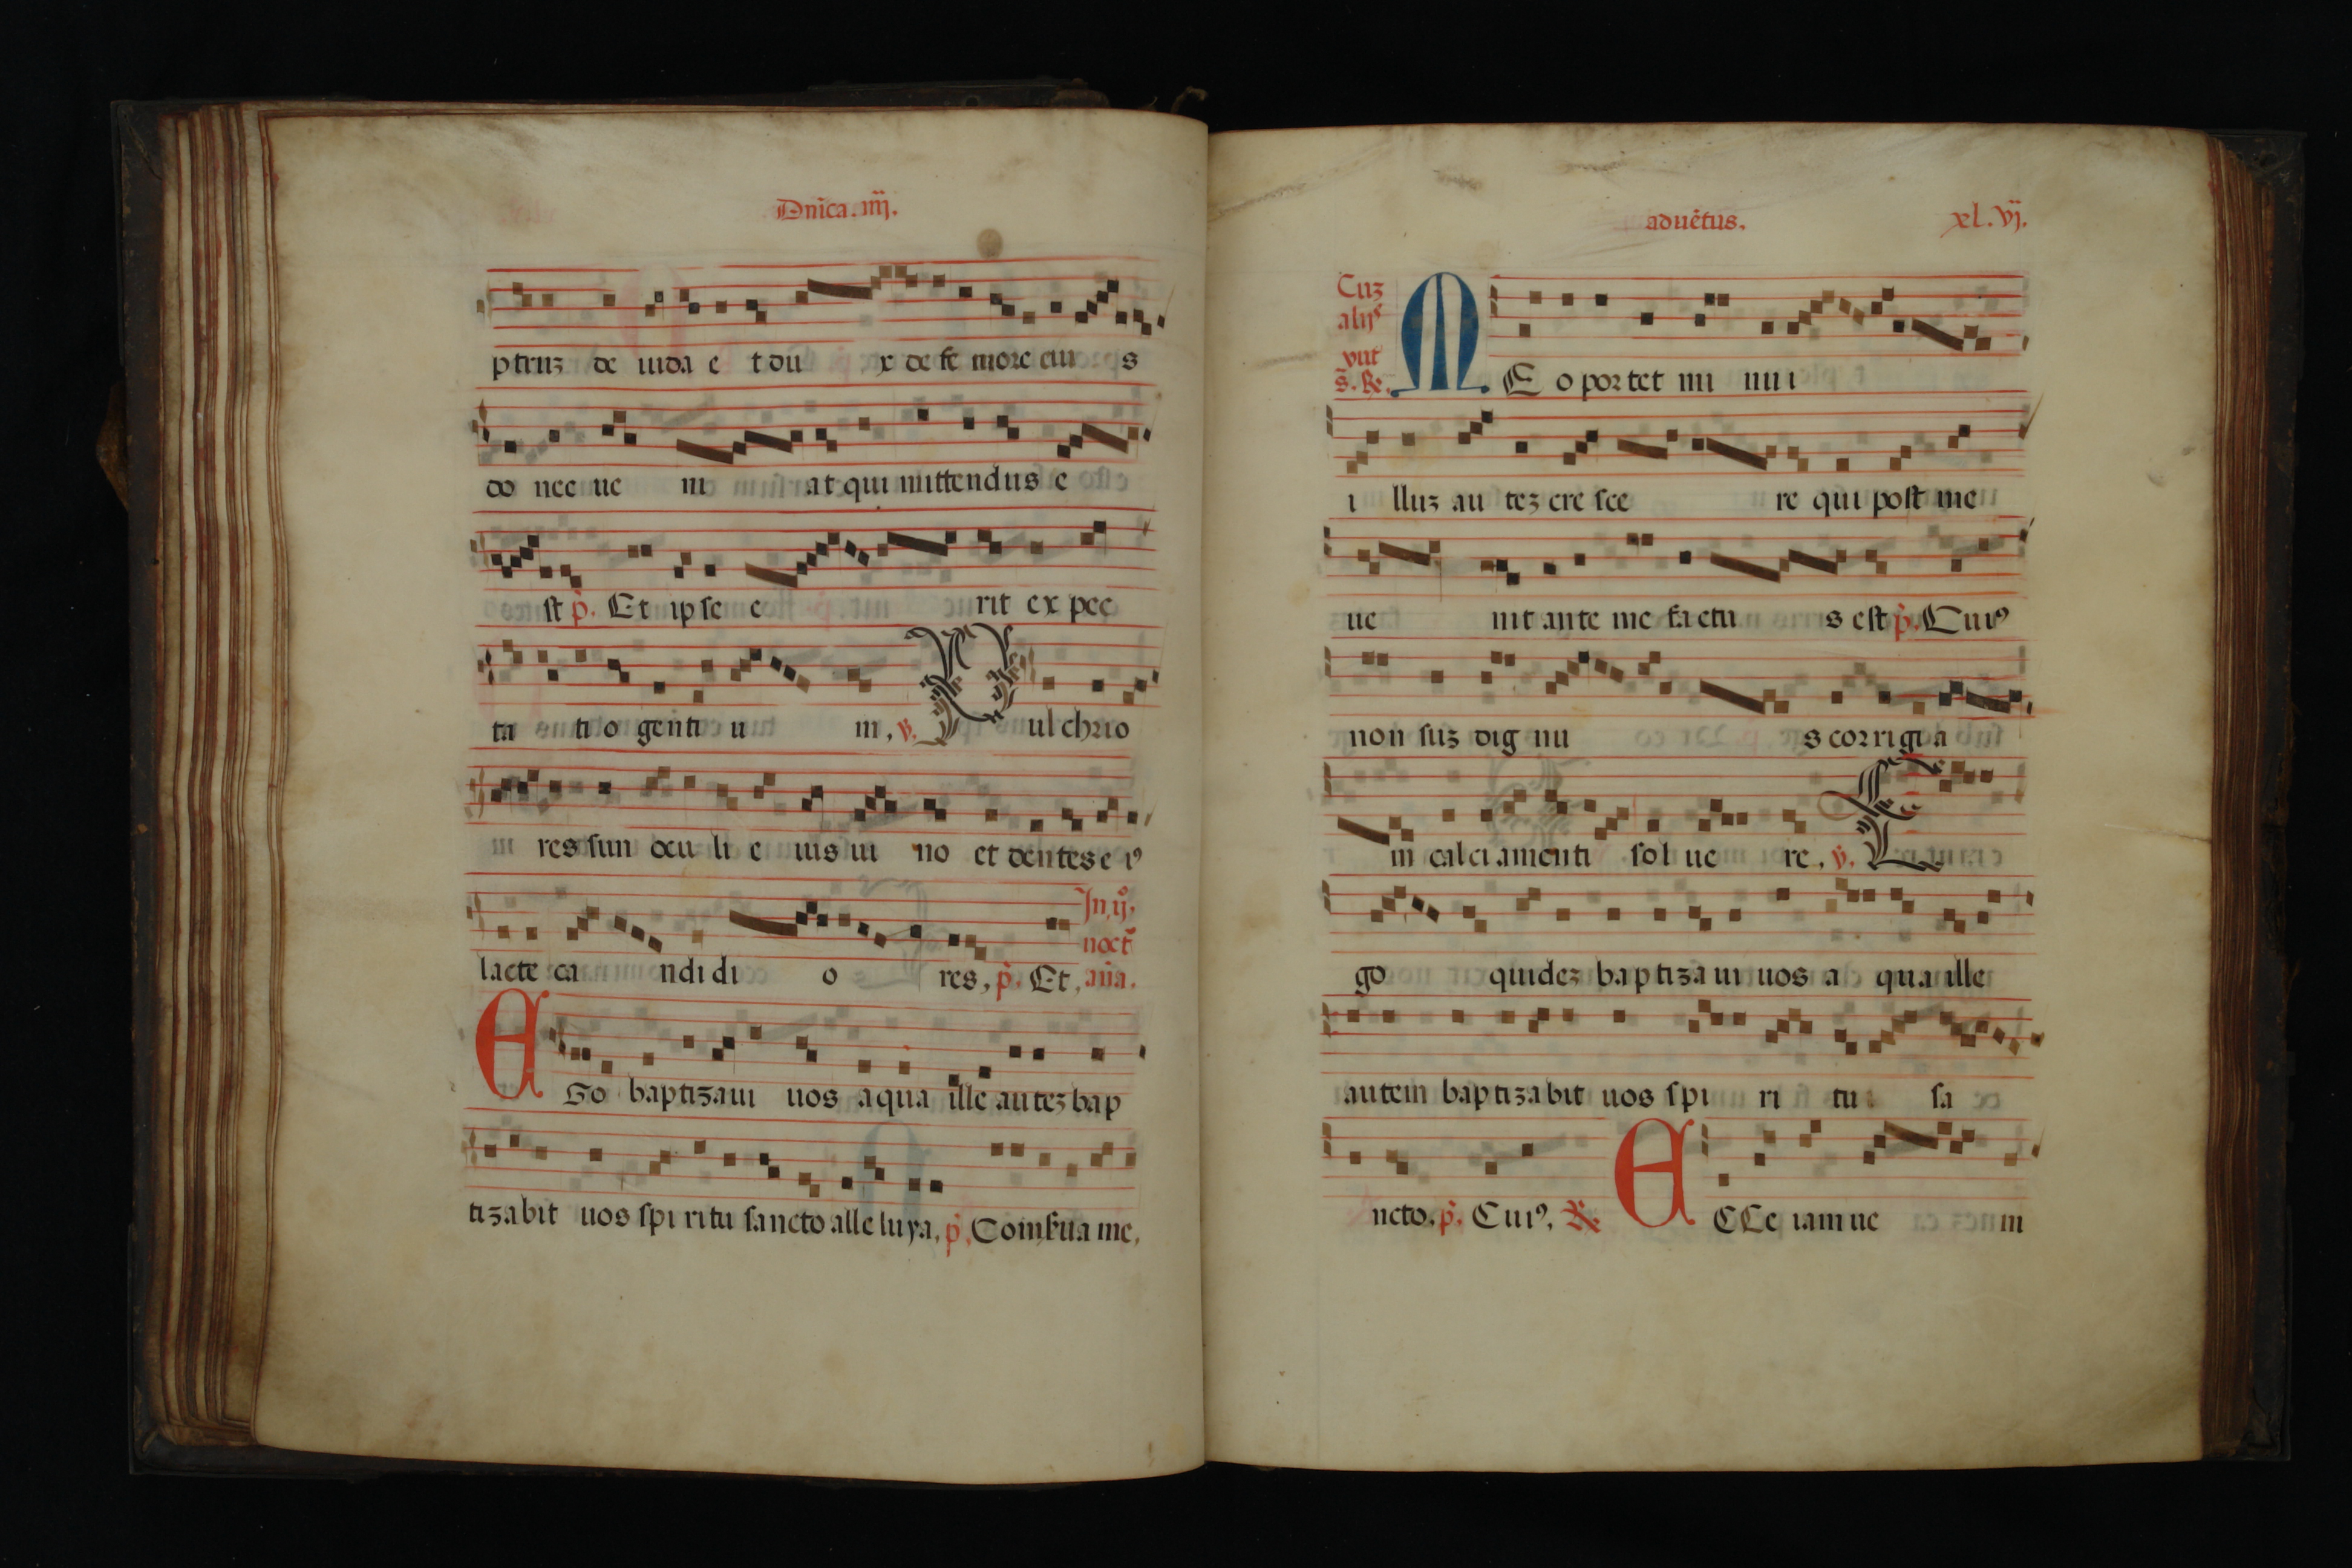 Dnica. iiij.
ptruz de iuda e t du x de fe more eiu s
do nec ue ni at qui mittendus e
st p. Et ipse e rit ex pec
ta ti o genti u m, v. Pul chrio
res sun ocu li e ius ui no et dentes e iꝰ
lacte ca ndi di o res, p. Et, In ij. noct. aña.
EGo baptizaui uos aqua ille autez bap
tizabit uos spi ritu sancto alle luya, p. Com̃s̃ua me,
aduẽtus. xl. vj.
Cuz alijs vnt s. R. ME o por tet mi nui
i lluz au tez cre sce re qui post me
ue nit ante me factu s est p. Cuiꝰ
non suz dig nu s corrigi a
m calci amenti sol ue re, v. E
go quidez baptiza ui uos a qua ille
autem baptizabit uos spi ri tu sa
ncto. p. Cuiꝰ. R ECCe iam ue ni